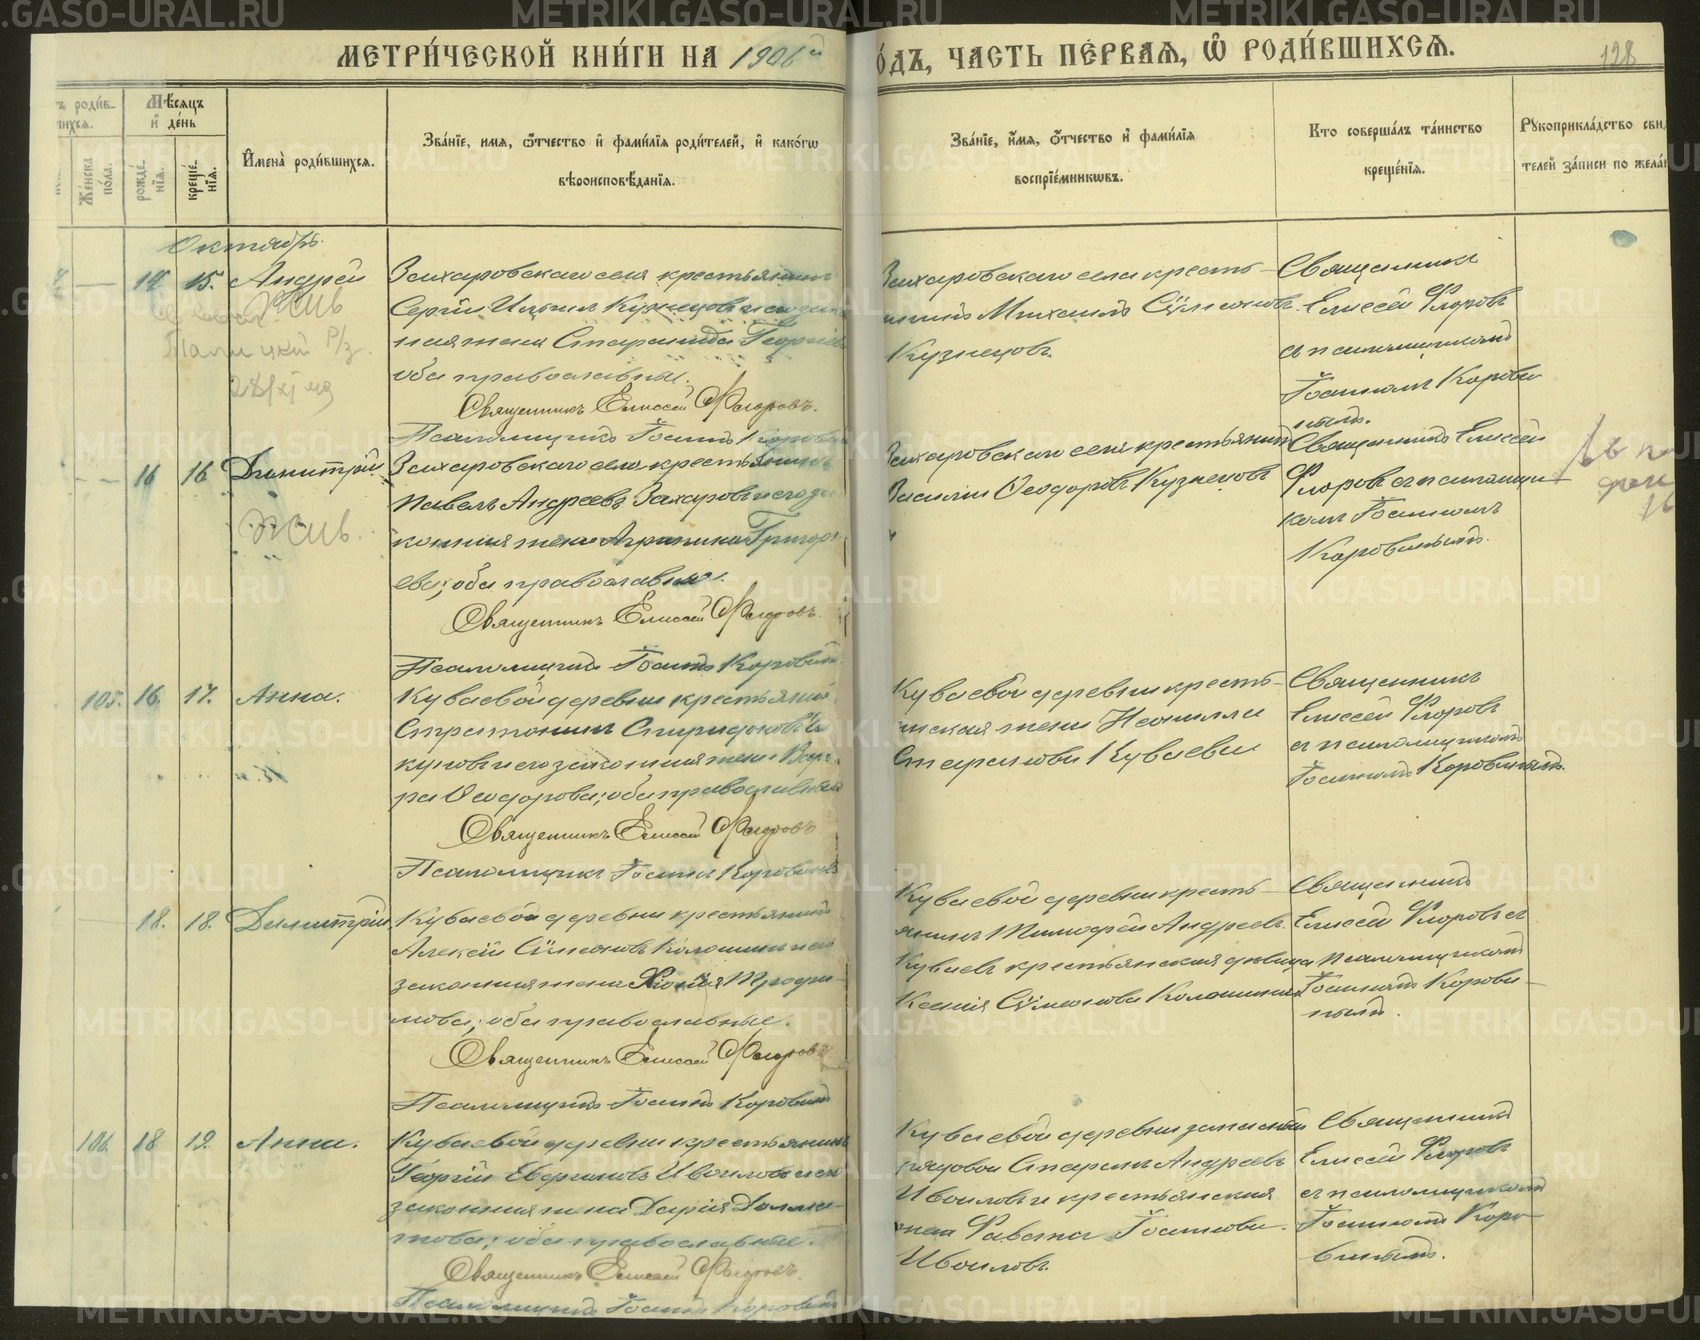 МЕТРИ́ЧЕСКОЙ КНИ́ГИ НА 1906й
О́ДЪ, ЧАСТЬ ПЕ́РВАЯ, Ѡ҆ РОДИ́ВШИХСЯ.
128
ъ роди́в-
шихся.
Же́нска по́ла.
Мѣ́сяцъ и҆ де́нь
рожде́нїя.
креще́нїя.
И҆мена̀ роди́вшихся.
Зва́нїе, имя, ѻ҆́тчество и҆ фами́лїя роди́телей, и҆ како́гѡ
вѣроисповѣ́данїя.
Зва́нїе, и҆́мя, ѻ҆́тчество и҆ фами́лїя
воспрїе́мникѡвъ.
Кто соверша́лъ та́инство
креще́нїя.
Рукоприкла́дство сви
телей за́писи по жела́
Октябрь.
14 15. Андрей
Захаровскаго села крестьянинъ
Сергій Ильинъ Кузнецовъ и его закон
ная жена Стефанида Георгіева
оба православные.
Священникъ Елисей Флоровъ.
Псаломщикъ Іоаннъ Коровинъ
Захаровскаго села кресть-
янинъ Михаилъ Сѵмеоновъ
Кузнецовъ.
Священникъ
Елисей Флоровъ
съ псаломщикомъ
Іоанномъ Корови
нымъ.
Жив
28/XI
16 16 Димитрій.
Захаровскаго села крестьянинъ
Павелъ Андреевъ Захаровъ и его за
конная жена Агрипина Григорь
ева; оба православные.
Священникъ Елисей Флоровъ.
Псаломщикъ Іоаннъ Коровинъ
Захаровскаго села крестьянинъ
Василій Ѳеодоровъ Кузнецовъ
Священникъ Елисей
Флоровъ съ псаломщи
комъ Іоанномъ
Коровинымъ.
Жив.
105. 16. 17. Анна.
Куваевой деревни крестьянинъ
Стратоникъ Спиридоновъ
куновъ и его законная жена Варва
ра Ѳеодорова; оба православные
Священникъ Елисей Флоровъ
Псаломщикъ Іоаннъ Коровинъ
Куваевой деревни кресть-
янская жена Неонилла
Стефанова Куваева.
Священникъ
Елисей Флоровъ
съ псаломщикомъ
Іоанномъ Коровинымъ.
18. 18. Димитрій
Куваевой деревни крестьянинъ
Алексій Сѵмеоновъ Колошинъ и его
законная жена Хіонія Трофи
мова; оба православные.
Священникъ Елисей Флоровъ
Псаломщикъ Іоаннъ Коровинъ
Куваевой деревни кресть-
янинъ Тимофей Андреевъ
Куваевъ крестьянская девица
Ксенія Сѵмеонова Колошина
Священникъ
Елисей Флоровъ съ
псаломщикомъ
Іоанномъ Корови-
нымъ.
106. 18 19. Анна.
Куваевой деревни крестьянинъ
Георгій Евфимовъ Ивойловъ и его
законная жена Дарія Долма-
това; оба православные.
Священникъ Елисей Флоровъ.
Псаломщикъ Іоаннъ Коровинъ
Куваевой деревни запасной
рядовой Стефанъ Андреевъ
Ивойловъ и крестьянская
жена Фавста Іоаннова
Ивойловъ.
Священникъ
Елисей Флоровъ
съ псаломщикомъ
Іоанномъ Коро-
винымъ.
METRIKI.GASO-URAL.RU